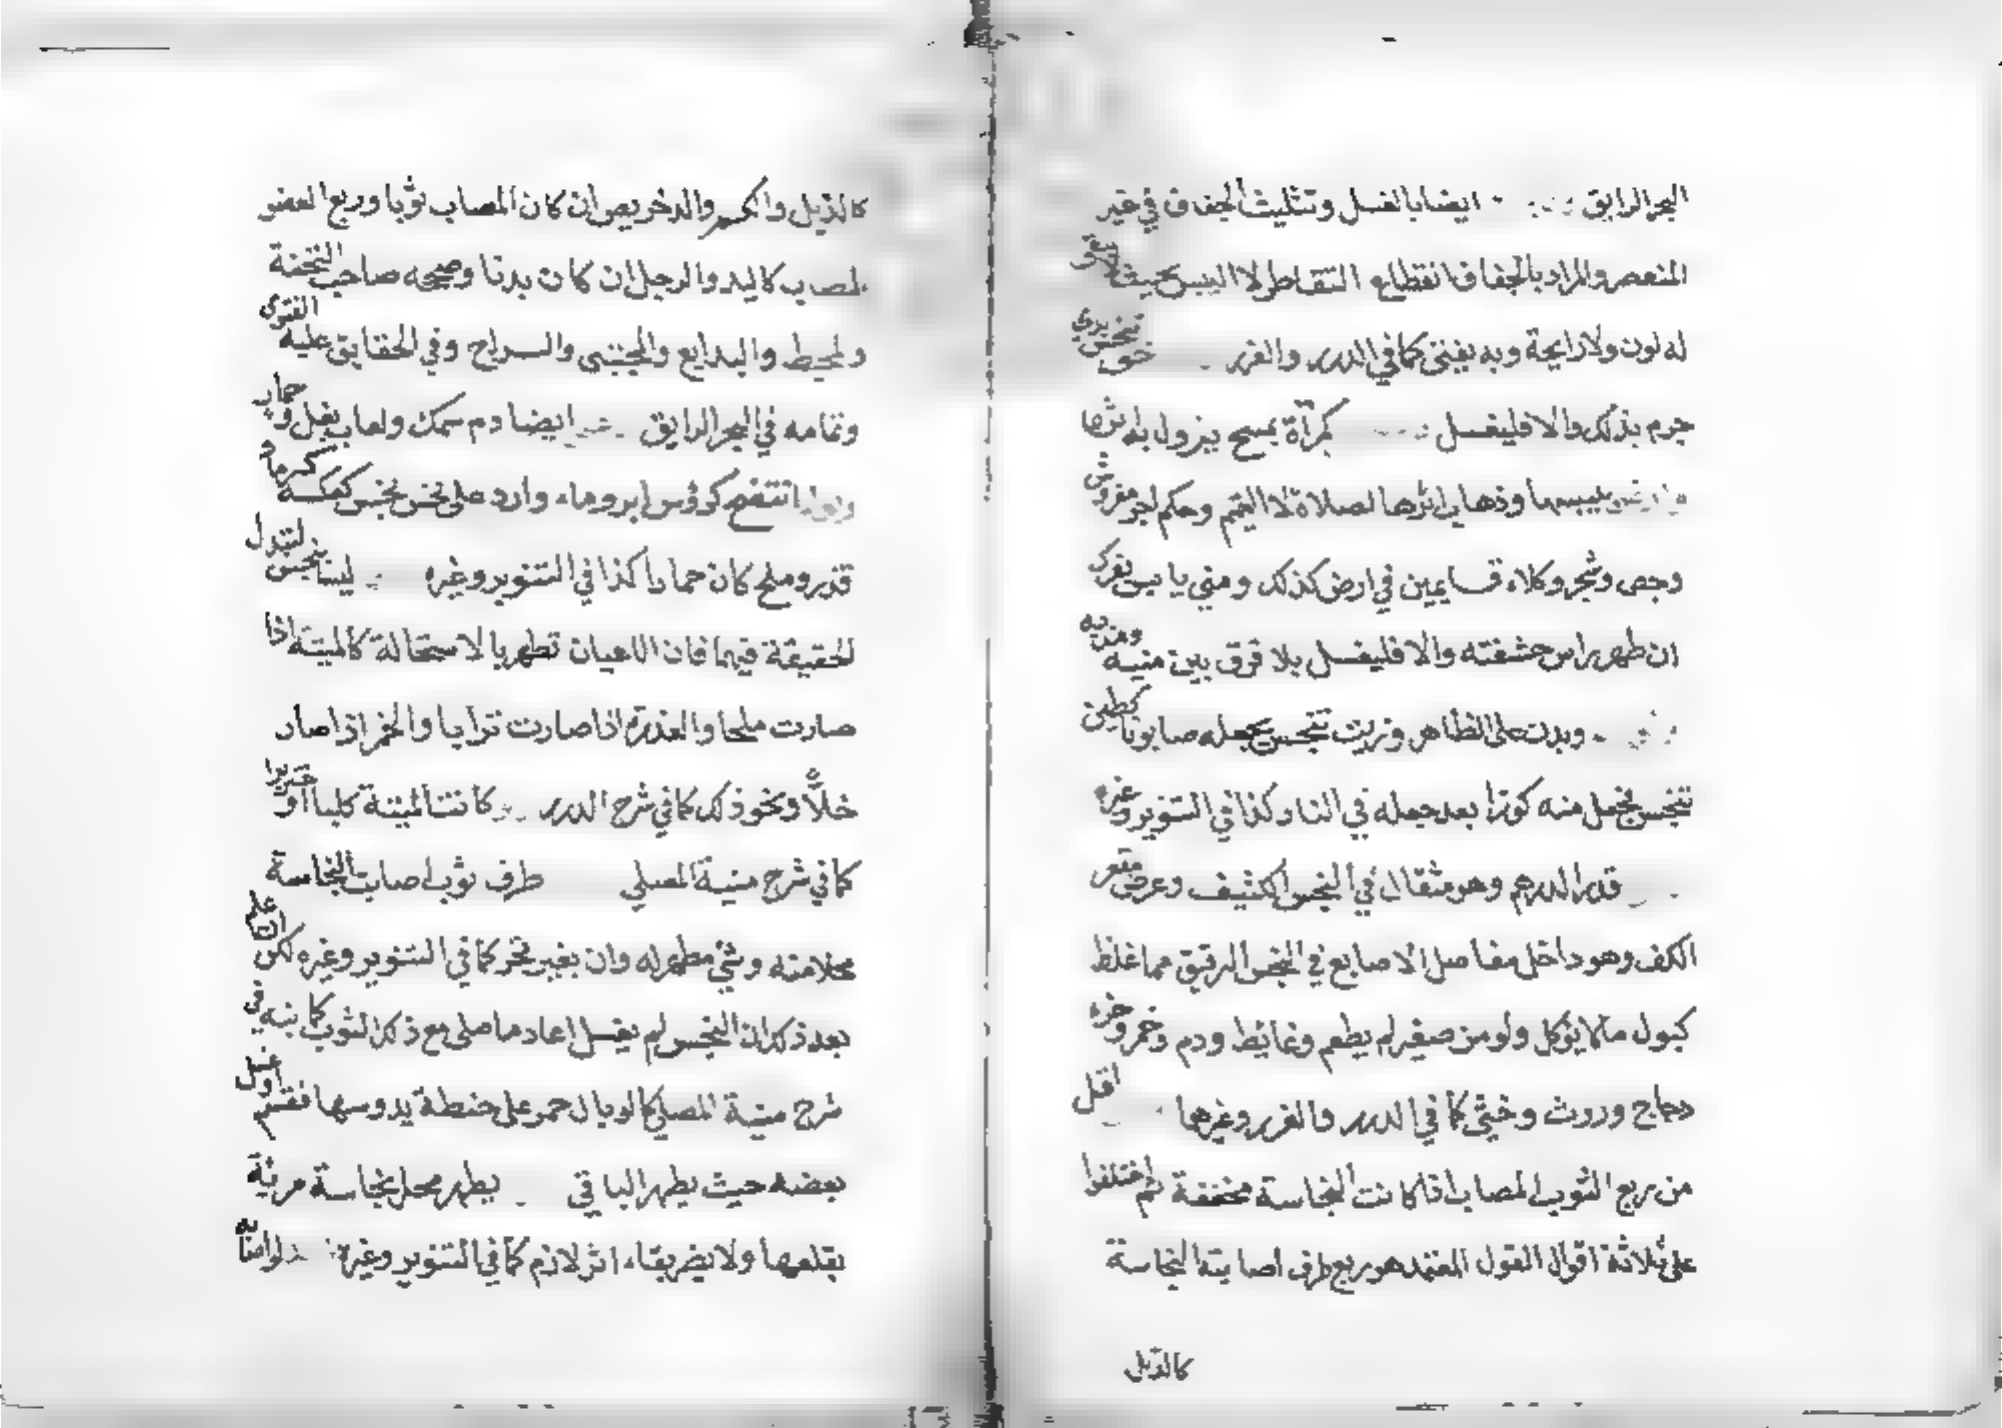 البحر الرايق ايضا بالغسل وتثليث الجفاف في غير
المنعصر والمراد بالجفاف انقطاع التقاطر لا اليبس بحيث
له لون ولا رايحة وبه يفتى كما في الدرر والغرر خو نجس يري
جرم بذلك والا فليغسل كمرآة بمسح يزول به اثرها
بيبسها وذهاب اثرها لصلاة لا التيمم وحكم اجر مفروش
وجص وشجر وكلاء قايمين في ارض كذلك ومني يابس بفرك
ان طهر راس حشفته والا فليغسل بلا فرق بين منيه ومنيها
وبدن على الظاهر وزيت تنجس بجعله صابونا كطين
تنجس فجعل منه كوزا بعد جعله في النار وكذا في التنوير وغيره
قدر الدرهم وهو مثقال في النجس الكثيف وعرض مقعر
الكف وهو داخل مفاصل الاصابع في النجس الرقيق مما غلظ
كبول ما لا يؤكل ولو من صغير لم يطعم وغائط ودم وخمر وخرء
دجاج وروث وخثي كما في الدرر والغرر وغيرهما اقل
من ربع الثوب المصاب اذا كانت النجاسة مخففة ثم اختلفوا
على ثلاثة اقوال القول المعتمد هو ربع طرف اصابته النجاسة
كالذيل
كالذيل والكم والدخريص ان كان المصاب ثوبا وربع العضو
لمصاب كاليد والرجل ان كان بدنا وصححه صاحب التحفة
ولمحيط والبدايع والمجتبى والسراج وفي الحقايق عليه الفتوى
وتمامه في البحر الرايق ايضا دم سمك ولعاب بغل وحمار
وبول انتضح كرؤس ابر وماء وارد على نجس نجس كعكسه
قذر وملح كان حمارا كذا في التنوير وغيره لتبدل
الحقيقة فيهما فان الاعيان تطهر بالاستحالة كالميتة اذا
صارت ملحا والعذرة اذا صارت ترابا والخمر اذا صار
خلاًّ ونحو ذلك كما في شرح الدرر وكانت الميتة كلبا او خنزيرا
كما في شرح منية المصلي طرف ثوب اصابت النجاسة
محلا منه ونسي مطهر له وان بغير تحر كما في التنوير وغيره لكن
بعد ذكر ان النجس لم يغسل اعاد ما صلى مع ذلك الثوب كما بينه في
شرح منية المصلي كما لو بال حمر على حنطة يدوسها فقسم او غسل
بعضه حيث يطهر الباقي يطهر محل نجاسة مرئية
بقلعها ولا يضر بقاء اثر لازم كما في التنوير وغيره